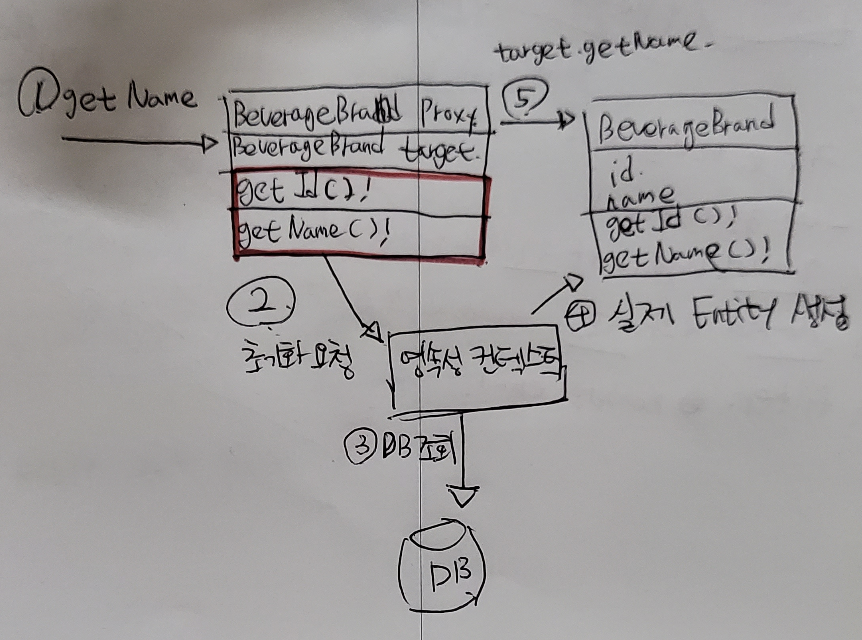 ① getName
BeverageBrand Proxy
BeverageBrand target.
get Id();
get Name();
②
초기화 요청
영속성 컨텍스트
③ DB 조회
DB
④ 실제 Entity 생성
target.getName.
⑤
BeverageBrand
id.
name
get Id();
getName();